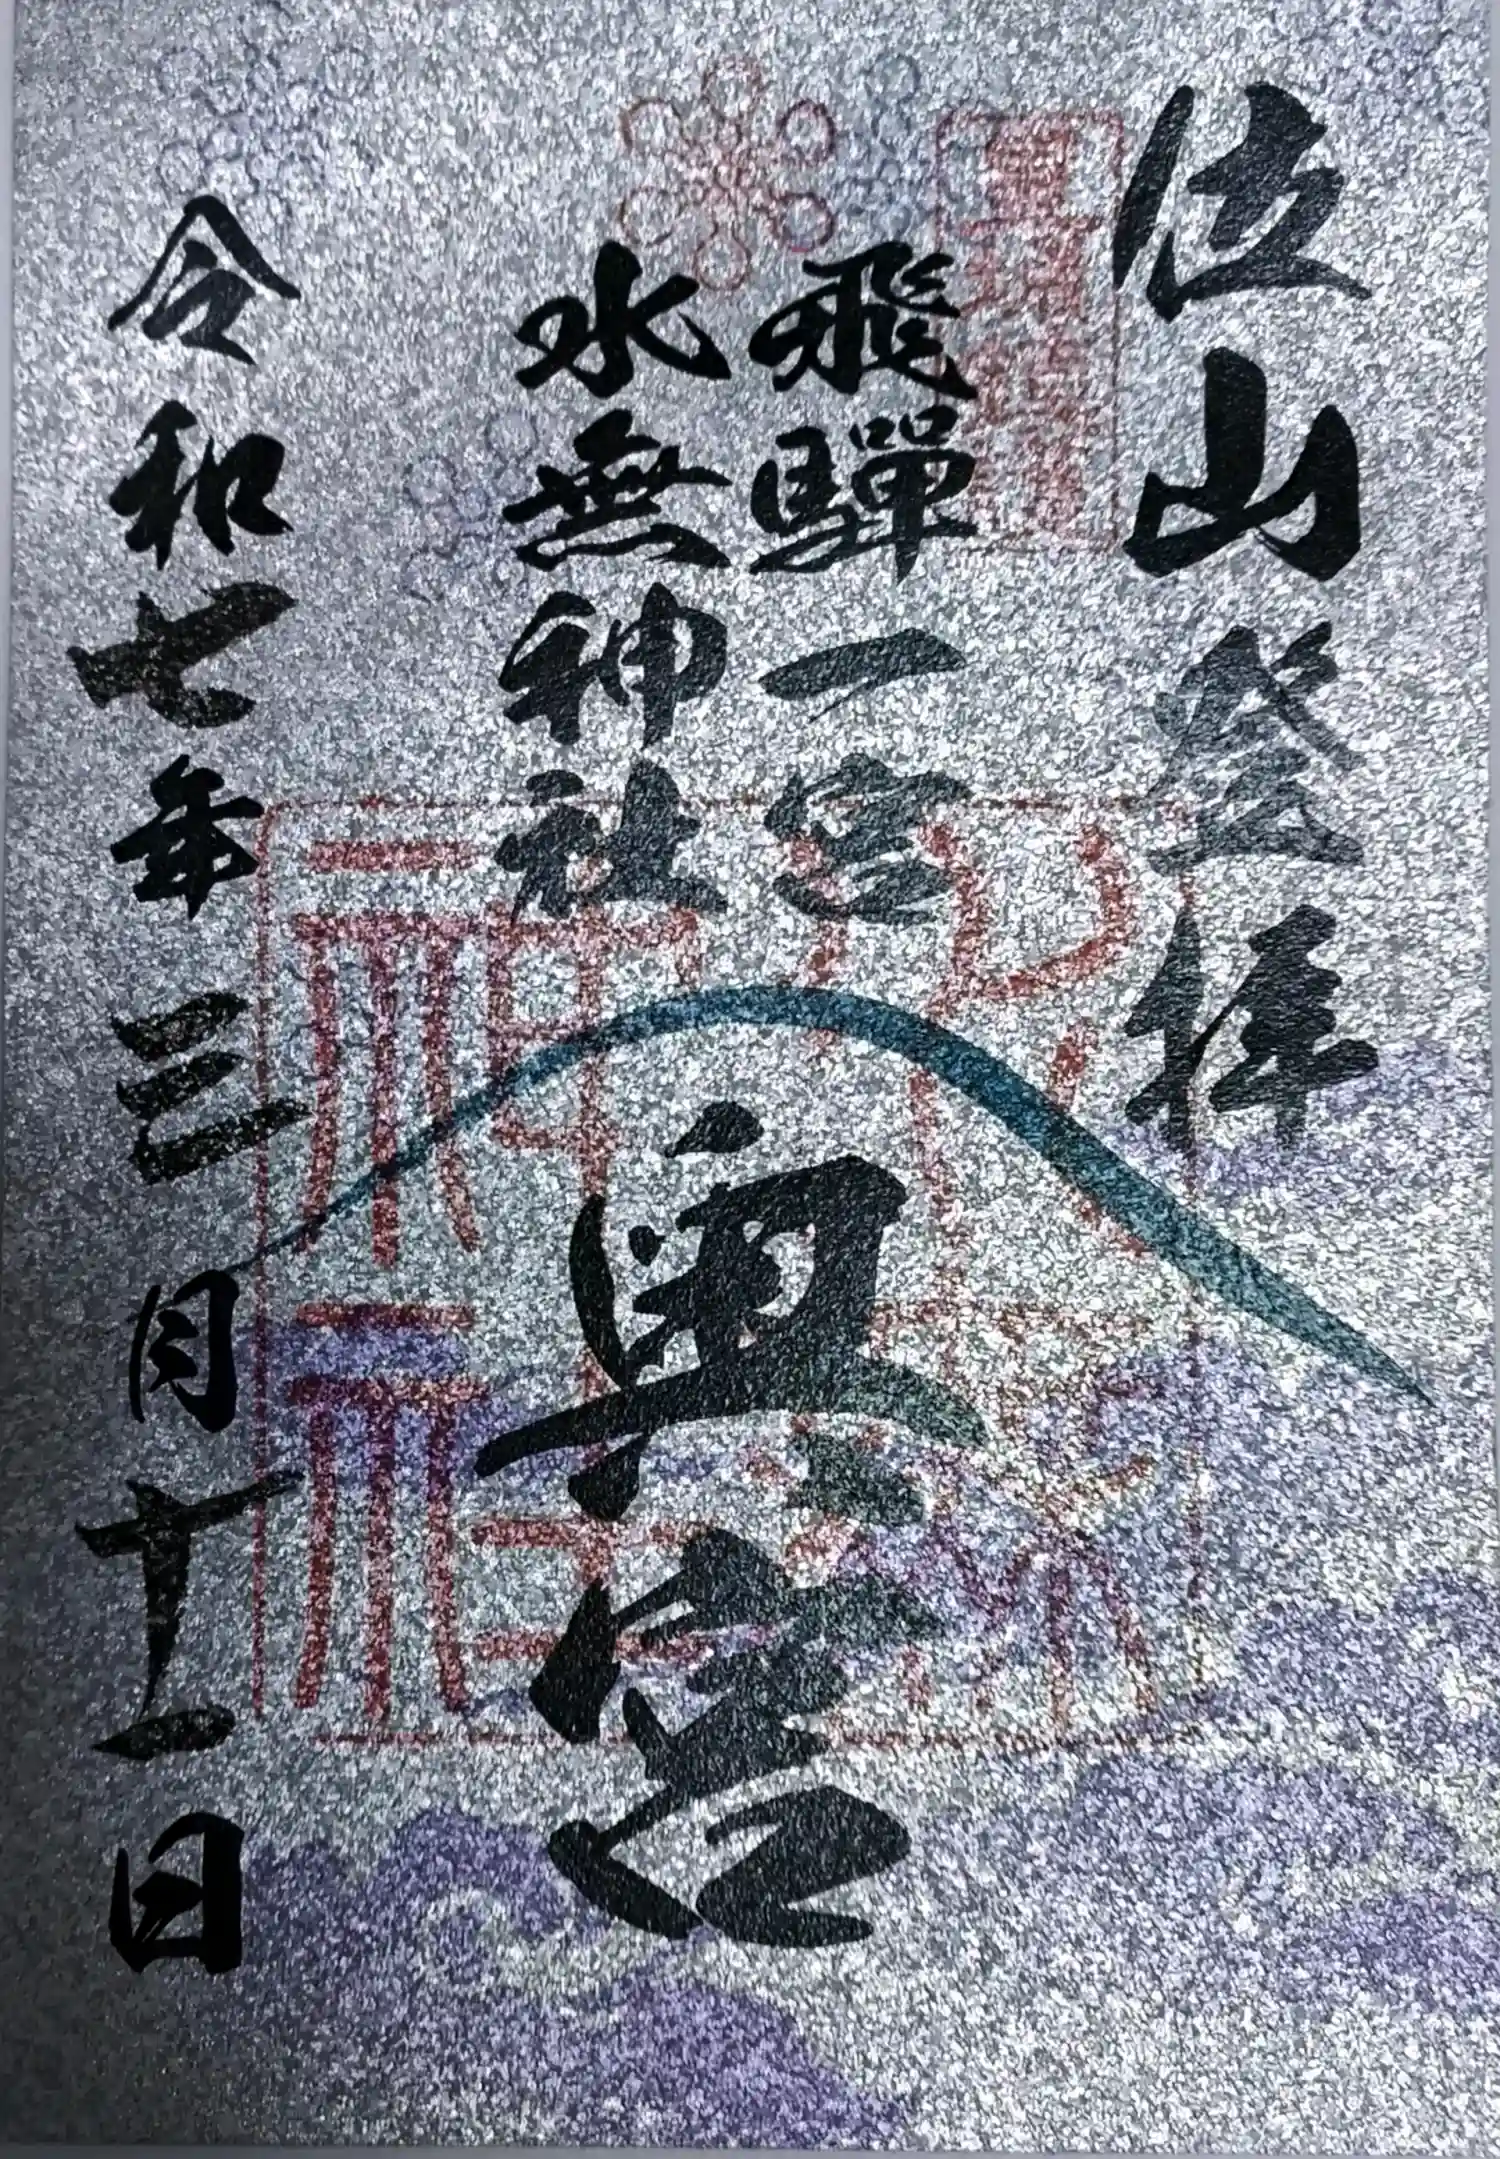 位山登拝
飛騨一宮
水無神社
奥宮
令和七年三月十一日
水無神社